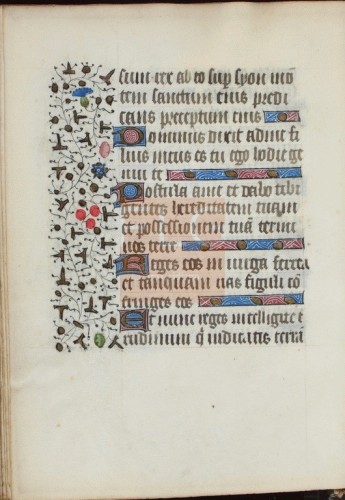 sum rex ab eo sup syon mō
tem sanctum eius predi
cans preceptum eius
Dominus dixit ad me fi
lius meus es tu ego hodie ge
nui te
Postula a me et dabo tibi
gentes hereditatem tuam
et possessionem tuā termi
nos terre
Reges eos in virga ferrea
et tanquam vas figuli cō
fringes eos
Et nunc reges intelligite e
rudimini q̄ iudicatis terrā